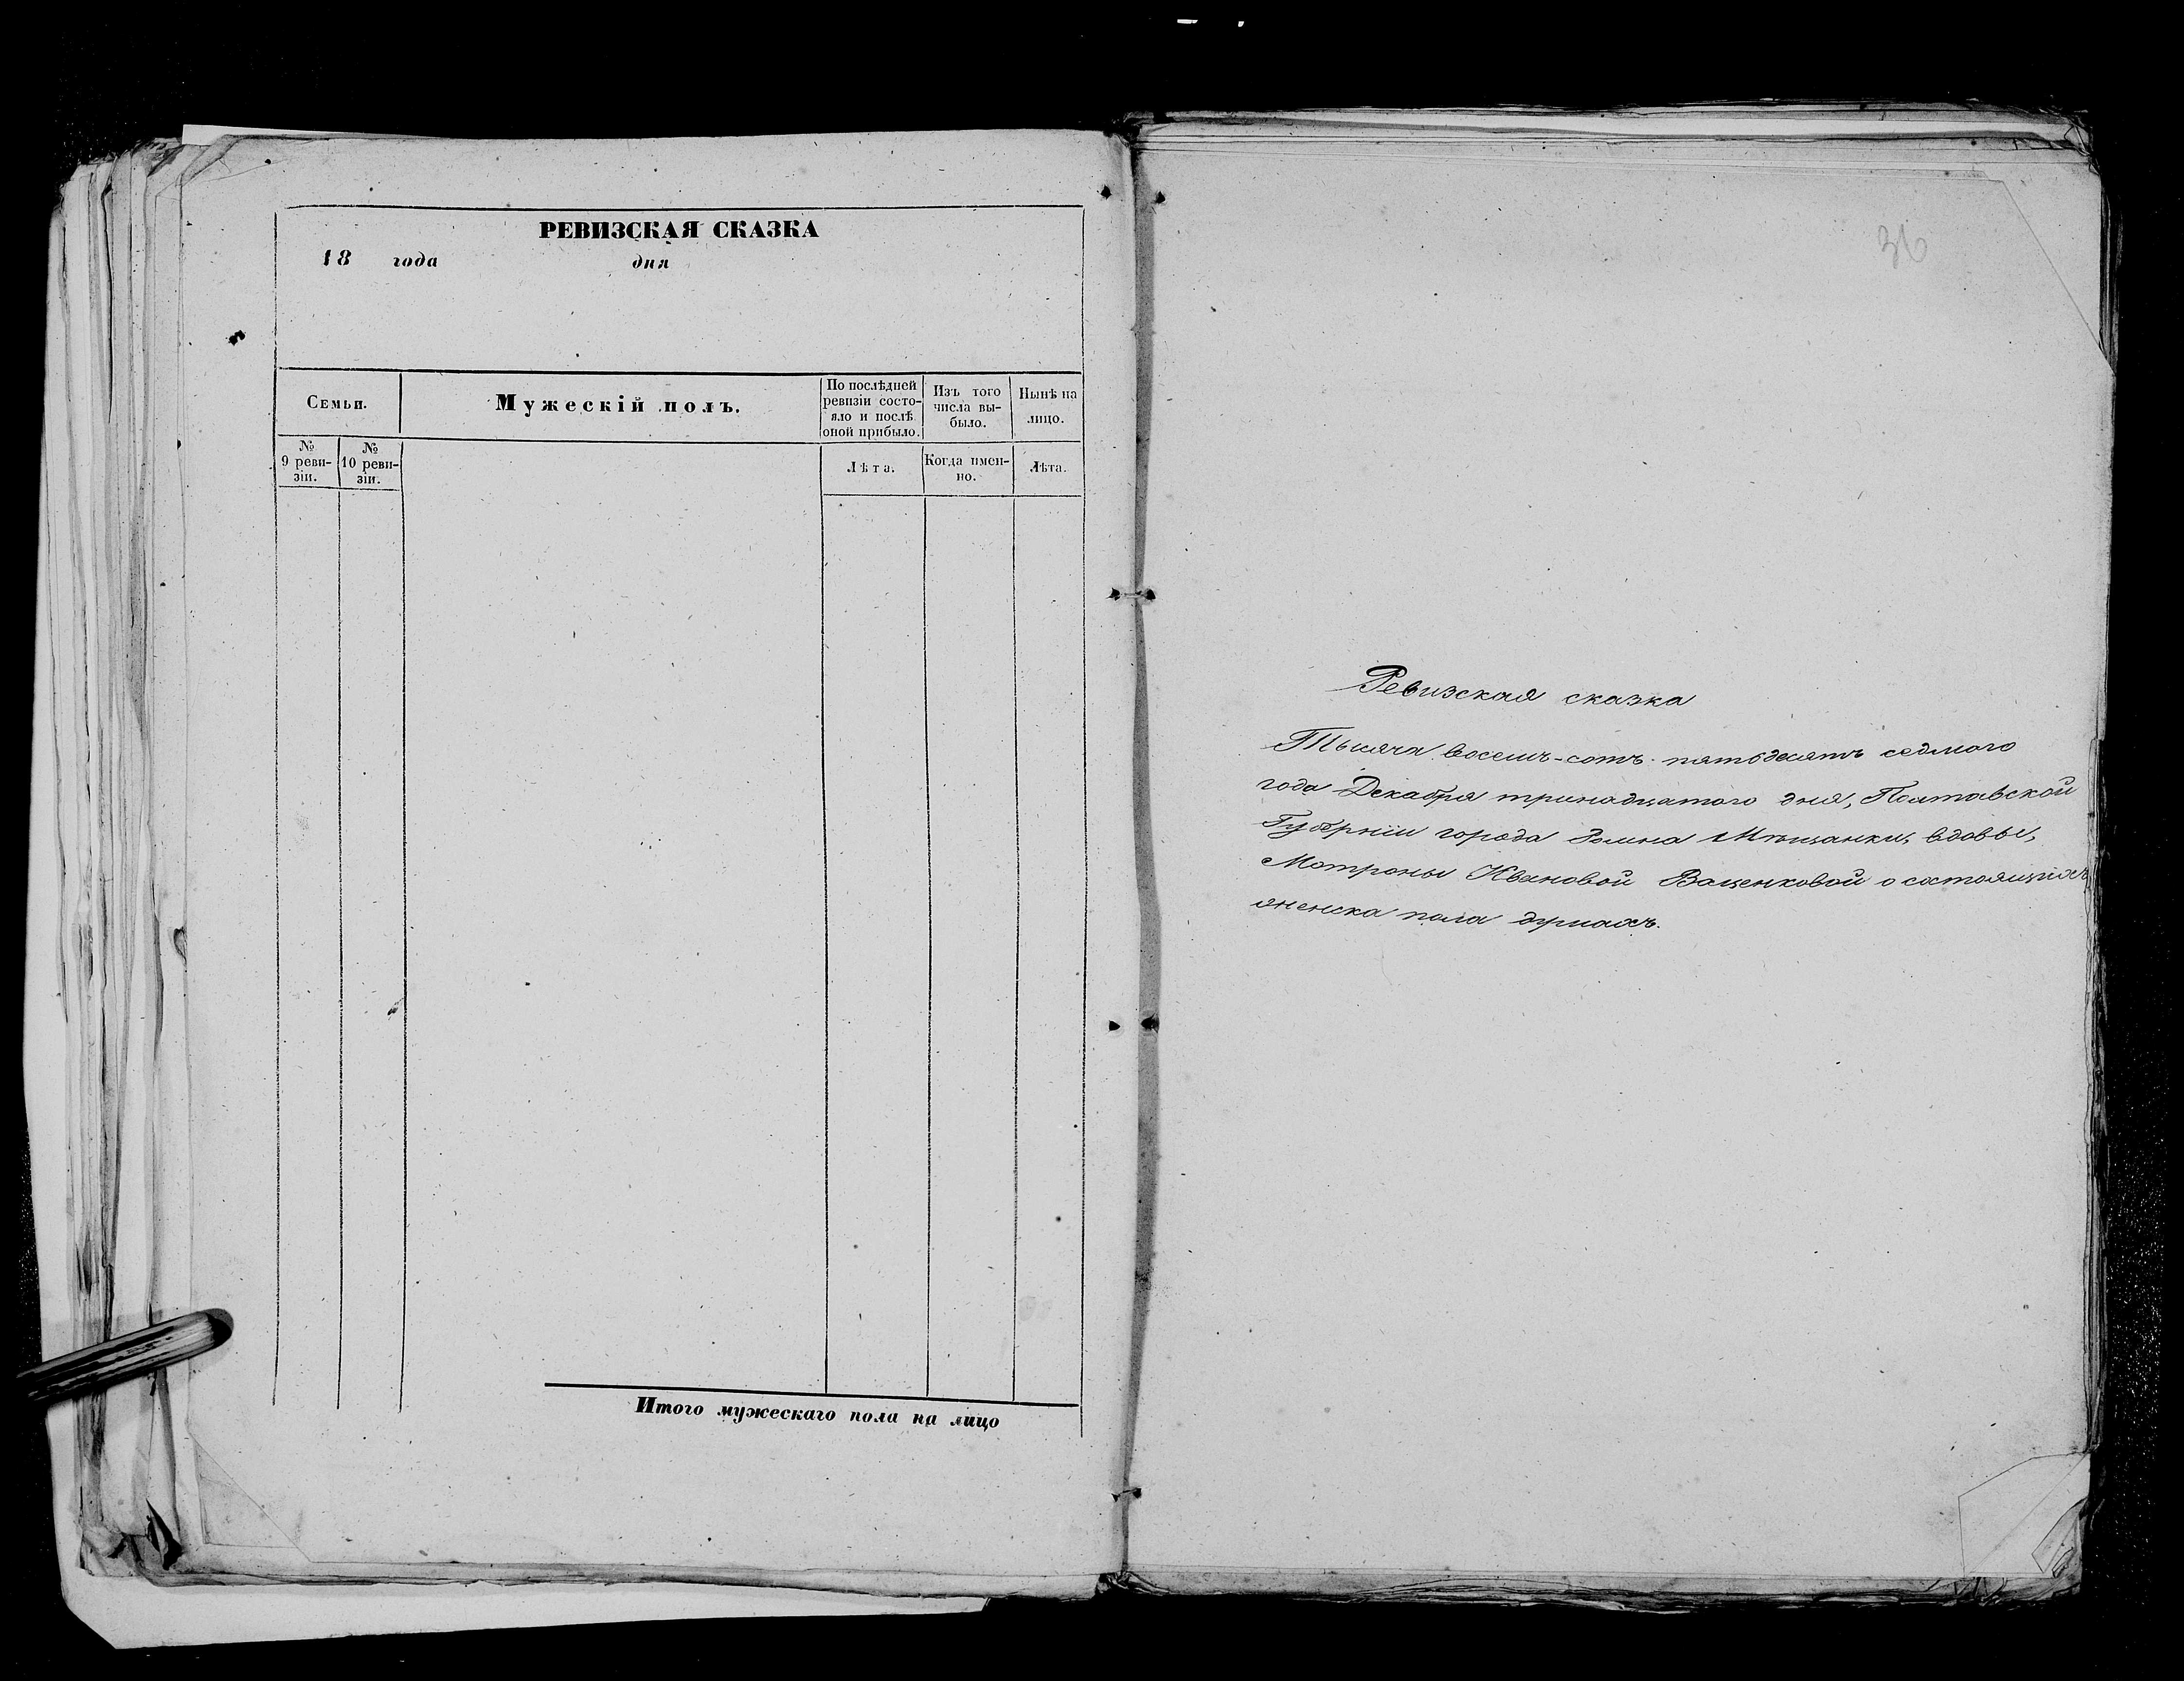 РЕВИЗСКАЯ СКАЗКА
18 года дня
Семьи.
Мужескій полъ.
По послѣдней ревизіи состо-
яло и послѣ оной прибыло.
Изъ того числа вы-
было.
Нынѣ на лицо.
№ 9 реви-
зіи.
№ 10 реви-
зіи.
Лѣта.
Когда имен-
но.
Лѣта.
Итого мужескаго пола на лицо
36
Ревизская сказка
Тысяча восемь-сотъ пятьдесятъ седмого
года Декабря тринадцатого дня, Полтавской
Губерніи города Ромна Мѣщанки, вдовы,
Мотроны Ивановой Ваценковой о состоящихъ
женска пола душахъ.